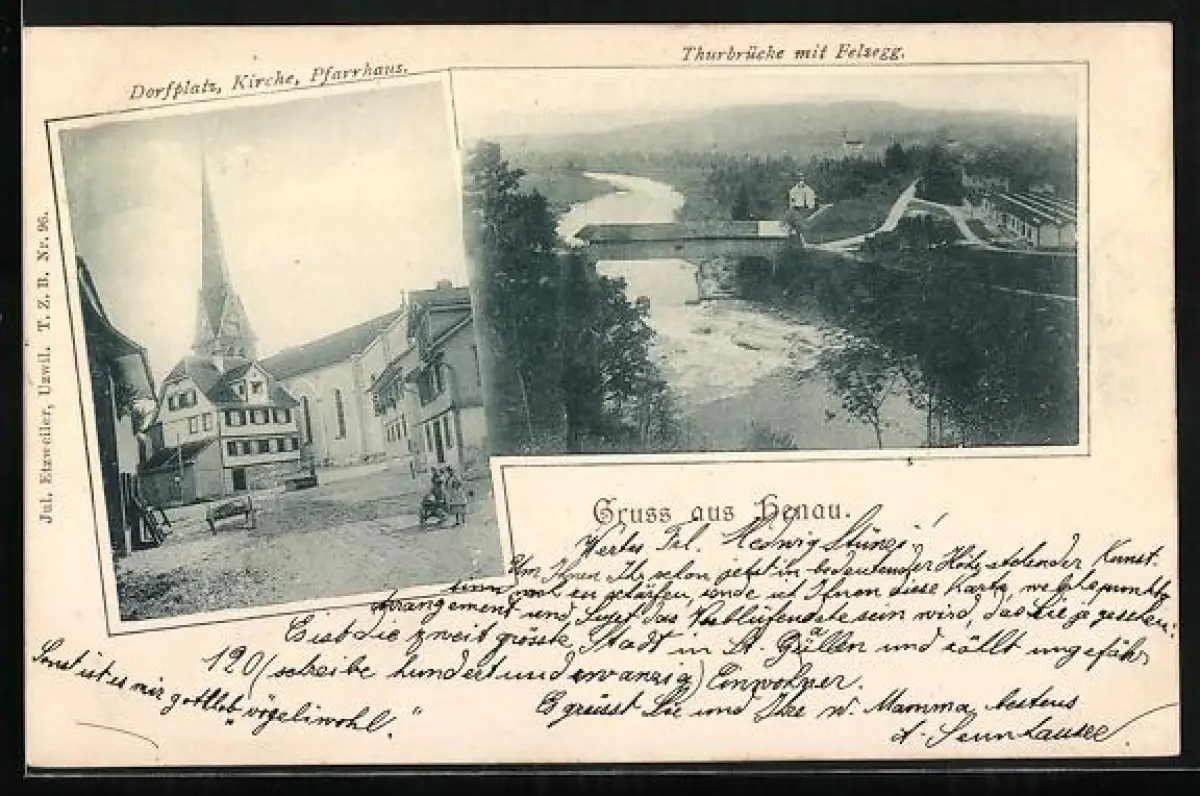 Dorfplatz, Kirche, Pfarrhaus.
Thurbrücke mit Felsegg.
Jul. Etzweiler, Uzwil. T. Z. B. Nr. 96.
Gruss aus Henau.
Wertes Frl. Hedwig Stünzi!
Um Ihnen Ihr schon jetzt in bedeutender Höhe stehender Kunst-
sinn noch zu schärfen, sende ich Ihnen diese Karte, welche punkto
Arrangement und Sujet das Verblüffendste sein wird, das Sie je gesehen:
Es ist die zweit grösste Stadt in St. Gallen und zählt ungefähr
120 (schreibe hundertundzwanzig) Einwohner.
Sonst ist es mir gottlob
"vögeliwohl."
Es grüsst Sie und Ihre w. Mamma bestens
A. Sennhauser.